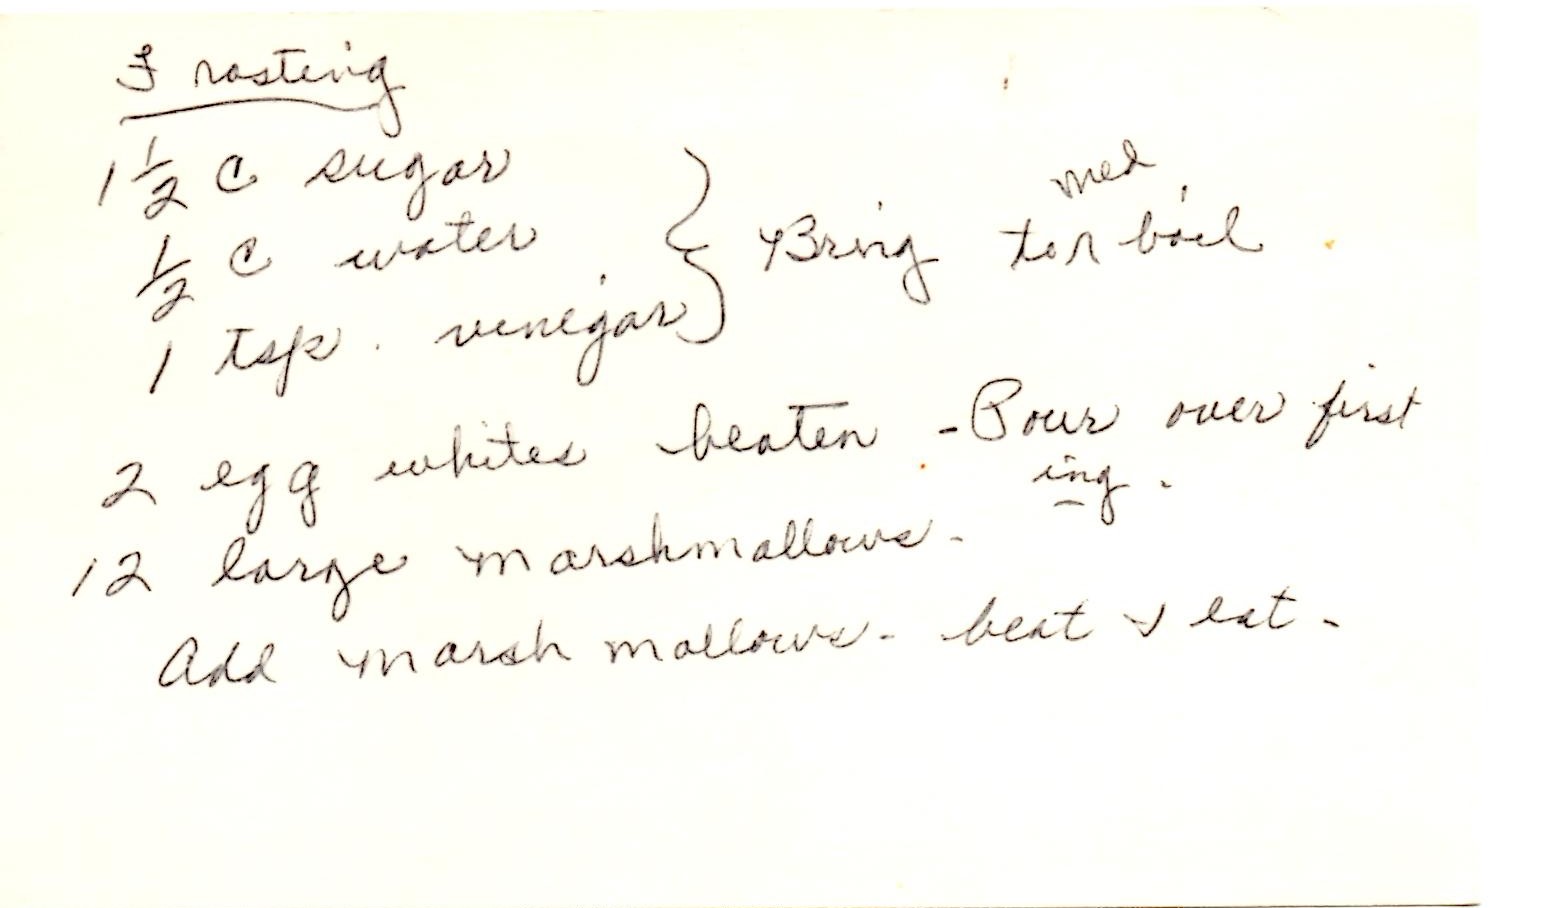 Frosting
1 1/2 c sugar
1/2 c water } Bring to med boil
1 tsp. vinegar
2 egg whites beaten - Pour over first ing.
12 large marshmallows -
Add marshmallows - beat & eat -